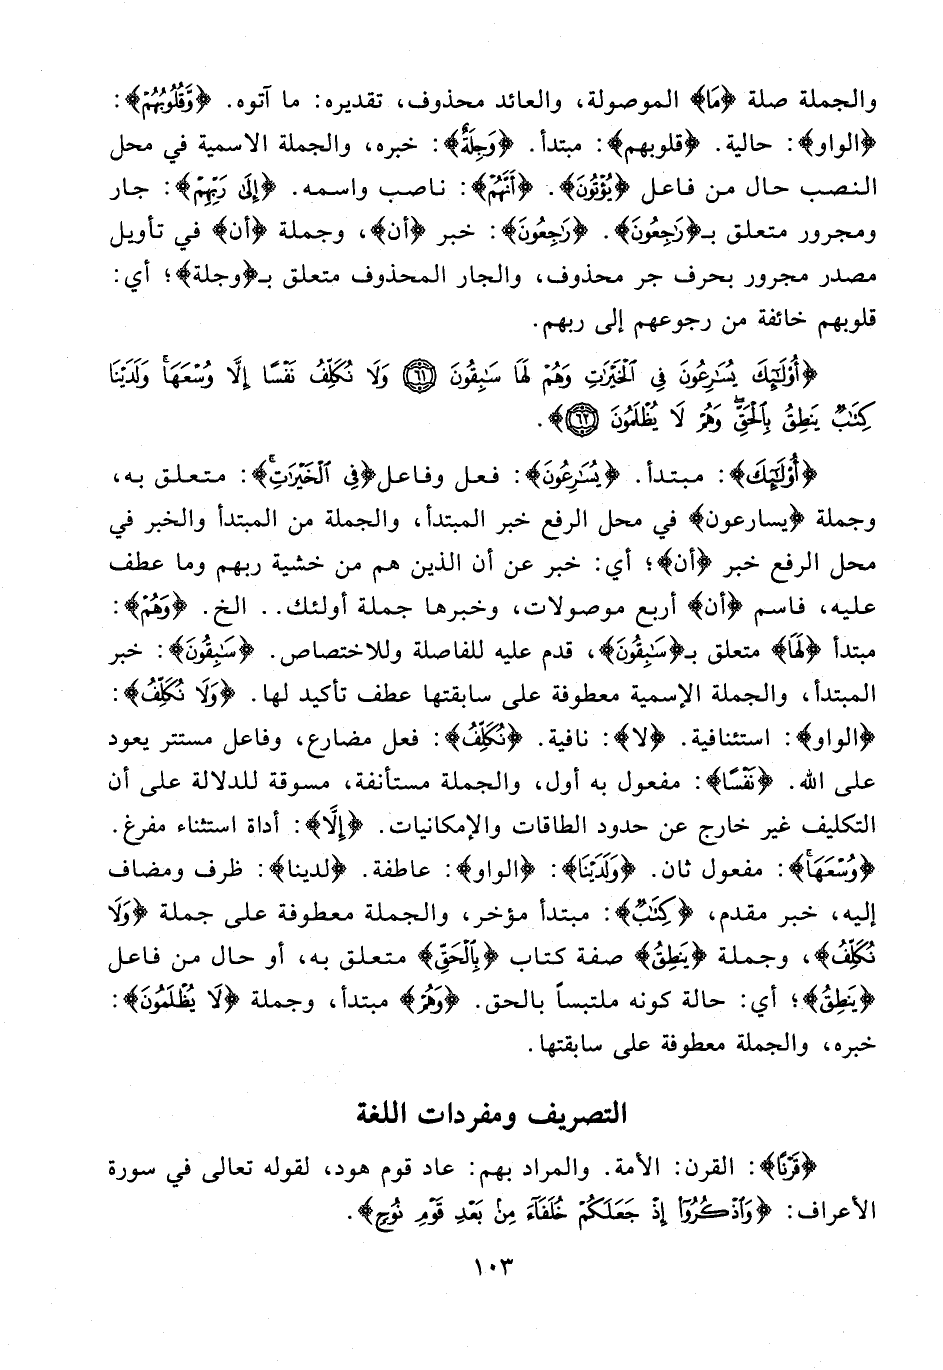 والجملة صلة ﴿مَا﴾ الموصولة، والعائد محذوف، تقديره: ما آتوه. ﴿وَّقُلُوبُهُمْ﴾:
﴿الواو﴾: حالية. ﴿قلوبهم﴾: مبتدأ. ﴿وَجِلَةٌ﴾: خبره، والجملة الاسمية في محل
النصب حال من فاعل ﴿يُؤْتُونَ﴾. ﴿أَنَّهُمْ﴾: ناصب واسمه. ﴿إِلَىٰ رَبِّهِمْ﴾: جار
ومجرور متعلق بـ﴿رَاجِعُونَ﴾. ﴿رَاجِعُونَ﴾: خبر ﴿أن﴾، وجملة ﴿أن﴾ في تأويل
مصدر مجرور بحرف جر محذوف، والجار المحذوف متعلق بـ﴿وجلة﴾؛ أي:
قلوبهم خائفة من رجوعهم إلى ربهم.
﴿أُوْلَٰٓئِكَ يُسَٰرِعُونَ فِي ٱلْخَيْرَٰتِ وَهُمْ لَهَا سَٰبِقُونَ ۝٦١ وَلَا نُكَلِّفُ نَفْسًا إِلَّا وُسْعَهَاۚ وَلَدَيْنَا
كِتَٰبٌ يَنطِقُ بِٱلْحَقِّۖ وَهُمْ لَا يُظْلَمُونَ ۝٦٢﴾.
﴿أُوْلَٰٓئِكَ﴾: مبتدأ. ﴿يُسَٰرِعُونَ﴾: فعل وفاعل﴿فِي ٱلْخَيْرَٰتِۚ﴾: متعلق به،
وجملة ﴿يسارعون﴾ في محل الرفع خبر المبتدأ، والجملة من المبتدأ والخبر في
محل الرفع خبر ﴿أن﴾؛ أي: خبر عن أن الذين هم من خشية ربهم وما عطف
عليه، فاسم ﴿أن﴾ أربع موصولات، وخبرها جملة أولئك.. الخ. ﴿وَهُمْ﴾:
مبتدأ ﴿لَهَا﴾ متعلق بـ﴿سَٰبِقُونَ﴾، قدم عليه للفاصلة وللاختصاص. ﴿سَٰبِقُونَ﴾: خبر
المبتدأ، والجملة الإسمية معطوفة على سابقتها عطف تأكيد لها. ﴿وَلَا نُكَلِّفُ﴾:
﴿الواو﴾: استئنافية. ﴿لا﴾: نافية. ﴿نُكَلِّفُ﴾: فعل مضارع، وفاعل مستتر يعود
على الله. ﴿نَفْسًا﴾: مفعول به أول، والجملة مستأنفة، مسوقة للدلالة على أن
التكليف غير خارج عن حدود الطاقات والإمكانيات. ﴿إِلَّا﴾: أداة استثناء مفرغ.
﴿وُسْعَهَاۚ﴾: مفعول ثان. ﴿وَلَدَيْنَا﴾: ﴿الواو﴾: عاطفة. ﴿لدينا﴾: ظرف ومضاف
إليه، خبر مقدم، ﴿كِتَٰبٌ﴾: مبتدأ مؤخر، والجملة معطوفة على جملة ﴿وَلَا
نُكَلِّفُ﴾، وجملة ﴿يَنطِقُ﴾ صفة كتاب ﴿بِٱلْحَقِّ﴾ متعلق به، أو حال من فاعل
﴿يَنطِقُ﴾؛ أي: حالة كونه ملتبساً بالحق. ﴿وَهُمْ﴾ مبتدأ، وجملة ﴿لَا يُظْلَمُونَ﴾:
خبره، والجملة معطوفة على سابقتها.
التصريف ومفردات اللغة
﴿قَرْنًا﴾: القرن: الأمة. والمراد بهم: عاد قوم هود، لقوله تعالى في سورة
الأعراف: ﴿وَٱذْكُرُوٓاْ إِذْ جَعَلَكُمْ خُلَفَآءَ مِنۢ بَعْدِ قَوْمِ نُوحٍ﴾.
١٠٣